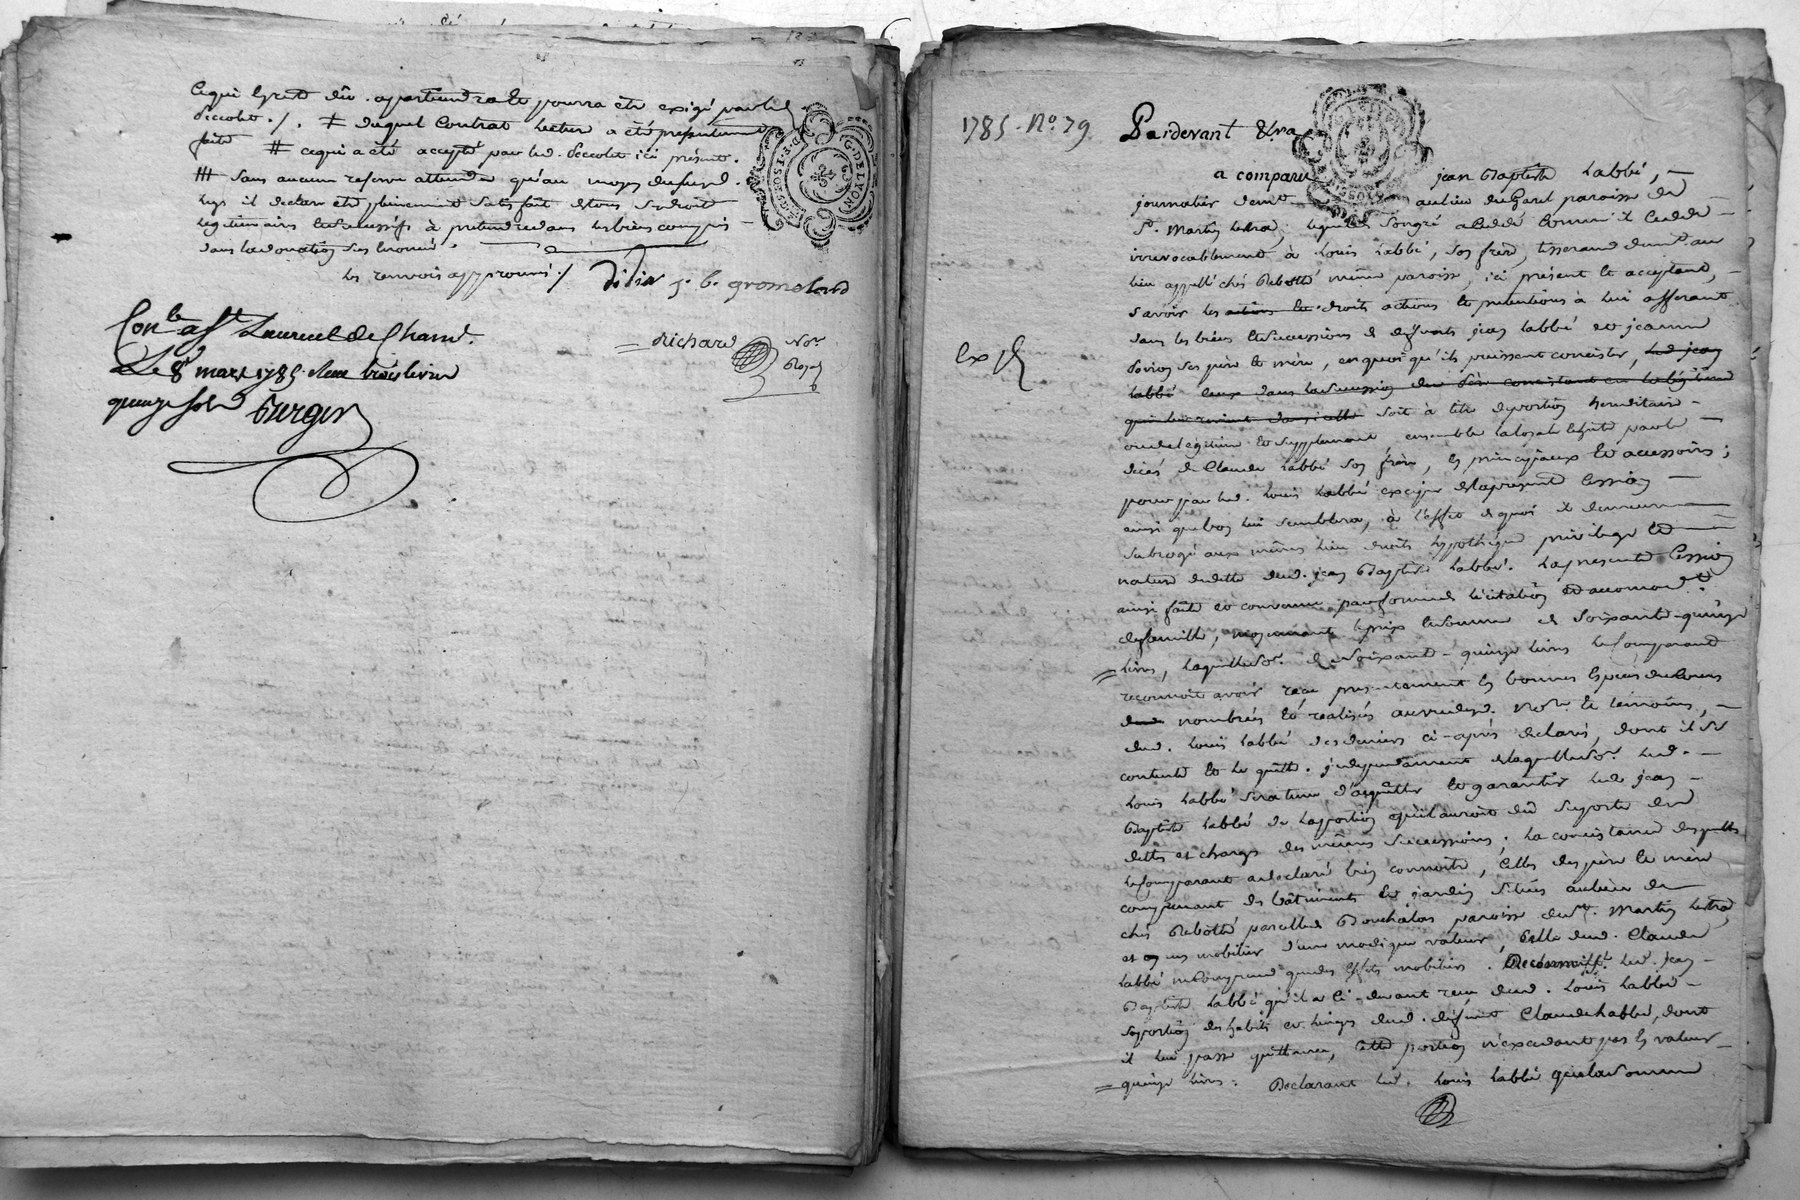 ce qui seroit dû. appartiendra et pourra etre exigé par led
Piccolet ./. # duquel Contrat lecture a été presentement
faite # ce qui a été accepté par led. Piccolet ici présent.
sans aucune reserve attendu qu'au moyen du
legs il declare être pleinement satisfait de tous ses droits
legitimaires et successifs à pretendre dans les biens compris
dans la donation
les renvois approuvés ./ Didier J. b. gromolard
Con.le aff.t
Le 8 mars 1785. Reçu trois livres
quinze sols Burgin
Richard No.re
Royal
G. DE LYON
1785. N.o 79
Pardevant &tra
a comparu jean Baptiste Labbé,
journalier dem.t au lieu du paroisse de
S.t Martin Lestra, lequel de son gré a cedé comme il cede
irrevocablement à Louis Labbé, son frere, tisserand dem.t au
lieu appellé chés Rebotté même paroisse, ici présent et acceptant,
savoir les actions et droits actions et pretentions à lui afferant
dans les biens et successions de defunts jean Labbé et jeanne
ses père et mère, en quoi qu'ils puissent consister, led jean
Labbé dans la succession
qui lui revient dans icelle soit à titre de portion hereditaire
ou de legitime et supplement, ensemble la portion echute par le
décés de Claude Labbé son frère, les principaux et accessoires;
pour par led. Louis Labbé exciper de la presente Cession
ainsi que bon lui semblera, à l'effet de quoi il demeure
subrogé aux mêmes lieu droits hypotheque privilege et
nature de dette dud. jean Baptiste Labbé. La presente Cession
ainsi faite et convenue par forme de licitation et accomodem.t
de famille, moyennant le prix et somme de soixante-quinze
livres, laquelle so.e de soixante-quinze livres le Comparant
reconnoit avoir reçue presentement en bonnes especes de cours
nombrées et realisées au vu desd. No.re et témoins,
dud. Louis Labbé des deniers ci-après declarés, dont il se
contente et le quitte. independamment de laquelle so.e led.
Louis Labbé sera tenu d'acquitter et garantir led jean
Baptiste Labbé de la portion qu'il auroit dû suporter des
dettes et charges des mêmes successions; La consistance desquelles
le Comparant a declaré bien connoitre, Celles des père et mère
comprenant des bâtiments et jardin situés au lieu de
chés Rebotté parcelle de paroisse de S.t Martin Lestra,
et en un mobilier d'une modique valeur, Celle dud. Claude
Labbé ne comprend que des effets mobiliers. Reconnoiss.t led. jean
Baptiste Labbé qu'il a ci-devant reçu dud. Louis Labbé
sa portion des habits et linges dud. defunt Claude Labbé, dont
il lui passe quittance, Cette portion n'excedant pas la valeur
quinze livres. Declarant led. Louis Labbé que la somme